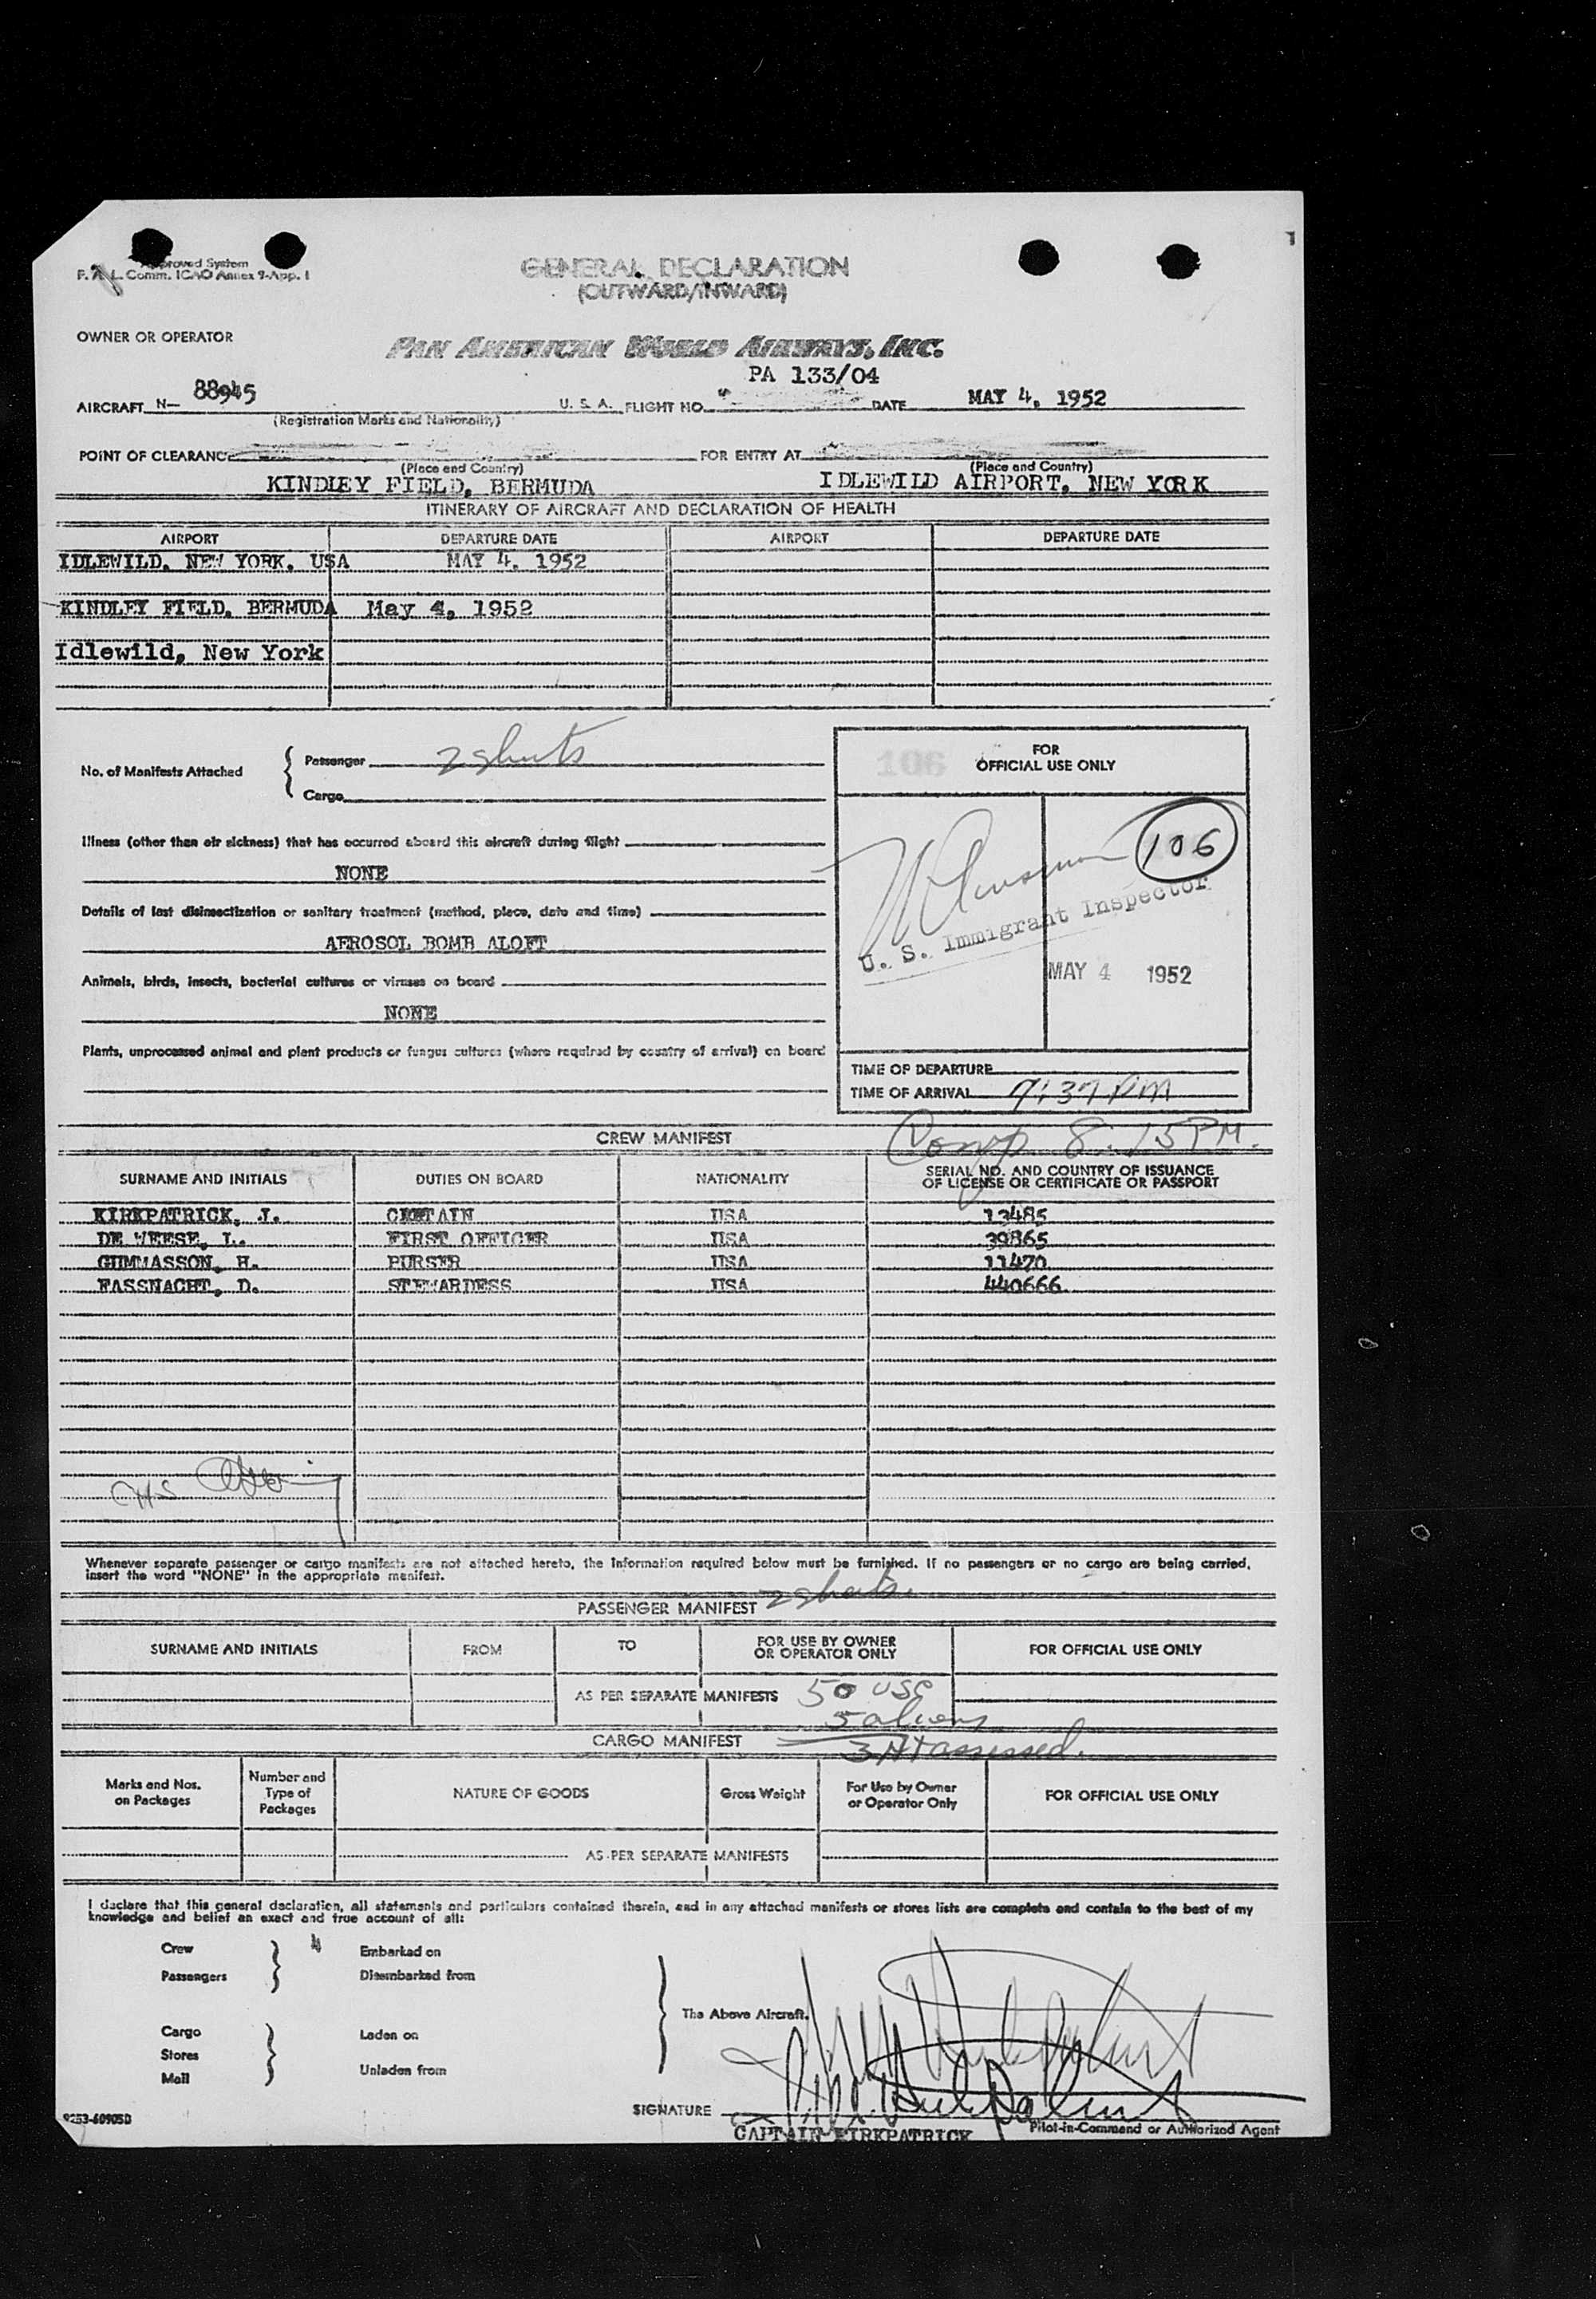 Approved System
F. A. L. Comm. ICAO Annex 9-App. 1
GENERAL DECLARATION
(OUTWARD/INWARD)
OWNER OR OPERATOR
PAN AMERICAN WORLD AIRWAYS, INC.
PA 133/04
AIRCRAFT N- 88945 U. S. A. FLIGHT NO. DATE MAY 4, 1952
(Registration Marks and Nationality)
POINT OF CLEARANCE FOR ENTRY AT
(Place and Country) (Place and Country)
KINDLEY FIELD, BERMUDA IDLEWILD AIRPORT, NEW YORK
ITINERARY OF AIRCRAFT AND DECLARATION OF HEALTH
AIRPORT DEPARTURE DATE AIRPORT DEPARTURE DATE
IDLEWILD, NEW YORK, USA MAY 4, 1952
KINDLEY FIELD, BERMUDA May 4, 1952
Idlewild, New York
No. of Manifests Attached
Passenger 2 sheets
Cargo
106 FOR
OFFICIAL USE ONLY
Illness (other than air sickness) that has occurred aboard this aircraft during flight
NONE
Details of last disinsectization or sanitary treatment (method, place, date and time)
AEROSOL BOMB ALOFT
Animals, birds, insects, bacterial cultures or viruses on board
NONE
Plants, unprocessed animal and plant products or fungus cultures (where required by country of arrival) on board
106
U. S. Immigrant Inspector
MAY 4 1952
TIME OF DEPARTURE
TIME OF ARRIVAL 7:37 PM
Comp 8:15 PM.
CREW MANIFEST
SURNAME AND INITIALS DUTIES ON BOARD NATIONALITY SERIAL NO. AND COUNTRY OF ISSUANCE
OF LICENSE OR CERTIFICATE OR PASSPORT
KIRKPATRICK, J. CAPTAIN USA 13485
DE WEESE, L. FIRST OFFICER USA 39865
GUMMASSON, H. PURSER USA 11470
FASSNACHT, D. STEWARDESS USA 440666
Whenever separate passenger or cargo manifests are not attached hereto, the information required below must be furnished. If no passengers or no cargo are being carried,
insert the word "NONE" in the appropriate manifest.
PASSENGER MANIFEST 2 sheets
SURNAME AND INITIALS FROM TO FOR USE BY OWNER
OR OPERATOR ONLY FOR OFFICIAL USE ONLY
AS PER SEPARATE MANIFESTS 50 USC
5 aliens
CARGO MANIFEST 3 HT assessed.
Marks and Nos.
on Packages Number and
Type of
Packages NATURE OF GOODS Gross Weight For Use by Owner
or Operator Only FOR OFFICIAL USE ONLY
AS PER SEPARATE MANIFESTS
I declare that this general declaration, all statements and particulars contained therein, and in any attached manifests or stores lists are complete and contain to the best of my
knowledge and belief an exact and true account of all:
Crew 4 Embarked on
Passengers Disembarked from
The Above Aircraft.
Cargo Laden on
Stores
Mail Unladen from
SIGNATURE
9253-60905D
CAPTAIN KIRKPATRICK Pilot-in-Command or Authorized Agent